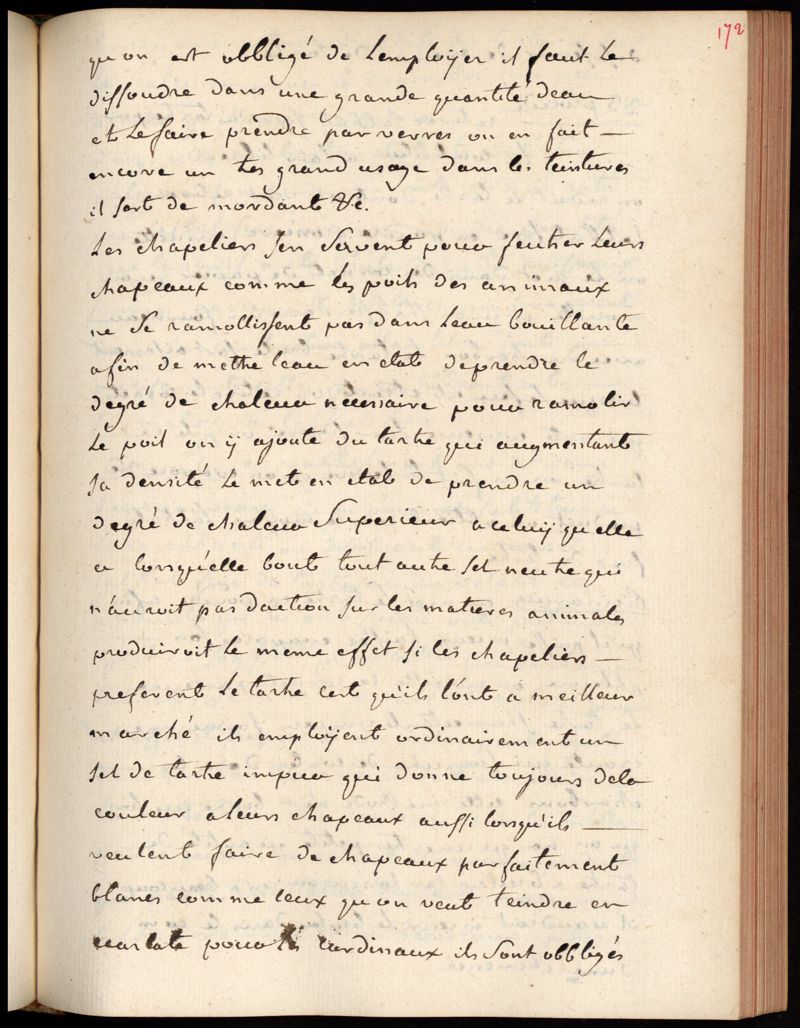 172
qu on est obbligé de Lemploÿer il faut Le
dissoudre dans une grande quantité deau
et Le faire prendre par verres on en fait —
encore un tes grand usage dans les teintures
il sert de mordant &c.
Les chapeliers sen Servent pour feutrer Leurs
chapeaux comme les poils des animaux
ne Se ramollissent pas dans Leau bouillante
afin de mettre leau en etat deprendre le
degré de chaleur necessaire pour ramolir
Le poil on ÿ ajoute du tartre qui augmentant
sa densité Le met en etat de prendre un
degré de chaleur Superieur a celuÿ qu'elle
a lorsqu'elle bout tout autre sel neutre qui
n'auroit pas daction sur les matieres animales
produiroit Le meme effet si les chapeliers —
preferent Le tartre cest qu'ils l'ont a meilleur
marché ils emploÿent ordinairement un
sel de tartre impur qui donne toujours dela
couleur a leurs chapeaux aussi lorsqu'ils —
veulent faire de chapeaux parfaitement
blancs comme ceux qu on veut teindre en
ecarlate pour les cardinaux ils Sont obbligés